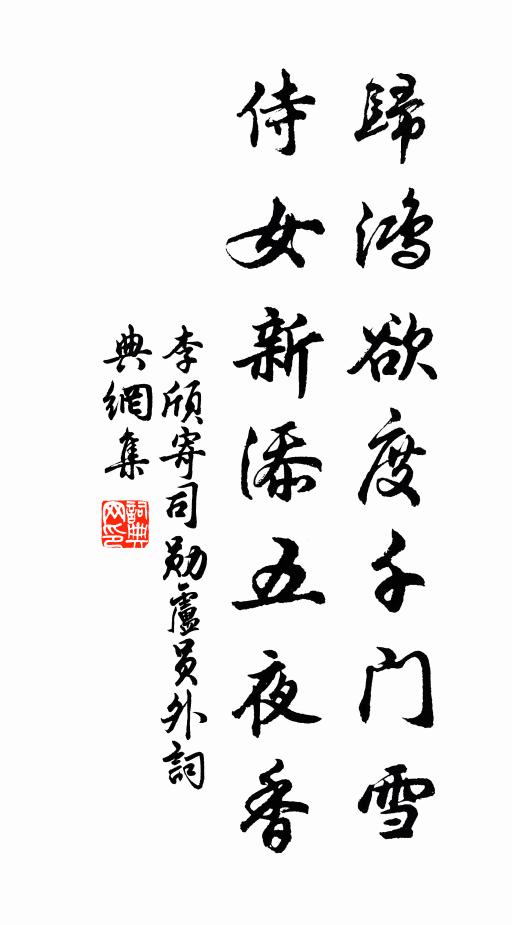 歸鴻欲度千门雪
侍女新添五夜香
李頎寄司勛盧员外詞
典網集
詞典网印